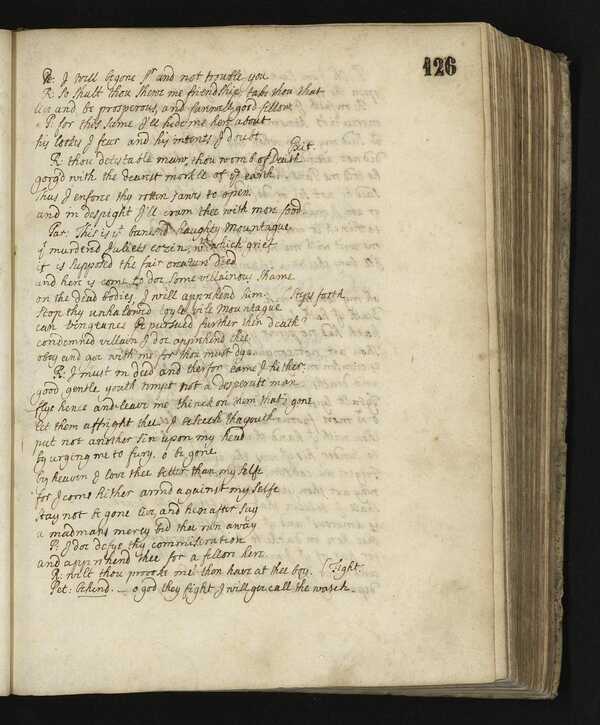 126
Pe: I will begone Sr and not trouble you
R: So shalt thou shewe me friendship, take thou that
live and be prosperous, and farewell good fellow.
P: for this same I'le hide me here about
his lookes I fear and his intents I doubt
Exit.
R: thou detestable maw, thou womb of Death
gorg'd with the dearest morsle of ye earth
thus I enforce thy rotten jaws to open
and in despight I'll cram thee with mor food
Par: This is yt banished haughty Mountague
yt murdered Juliets cozin, wth which grief
it is supposed the fair creature died
and here is come to doe some villainous shame
on the dead bodies, I will apprehend him. (Steps forth
stop thy unhalowed toyle vile Mountague
can vengeance be pursued further then death?
condemned villain I doe apprehend thee
obey and goe with me for thou must dye
R: I must in deed and therfor came I hither.
good gentle youth tempt not a desperate man
flye hence and leave me thinck on them thats gone
let them affright thee. I beseech thee youth
put not another sin upon my head
by urging me to fury. o be gone
by heaven I love thee better than my selfe
for I come hither armd against my selfe
stay not be gone live and hereafter say
a madmans mercy bid thee run away
P: I doe defye thy commiseration
and apprehend thee for a fellon here
R: wilt thou provoke me then have at thee boy. (Fight.
Pet: behind. — o god they fight I will goe call the watch.